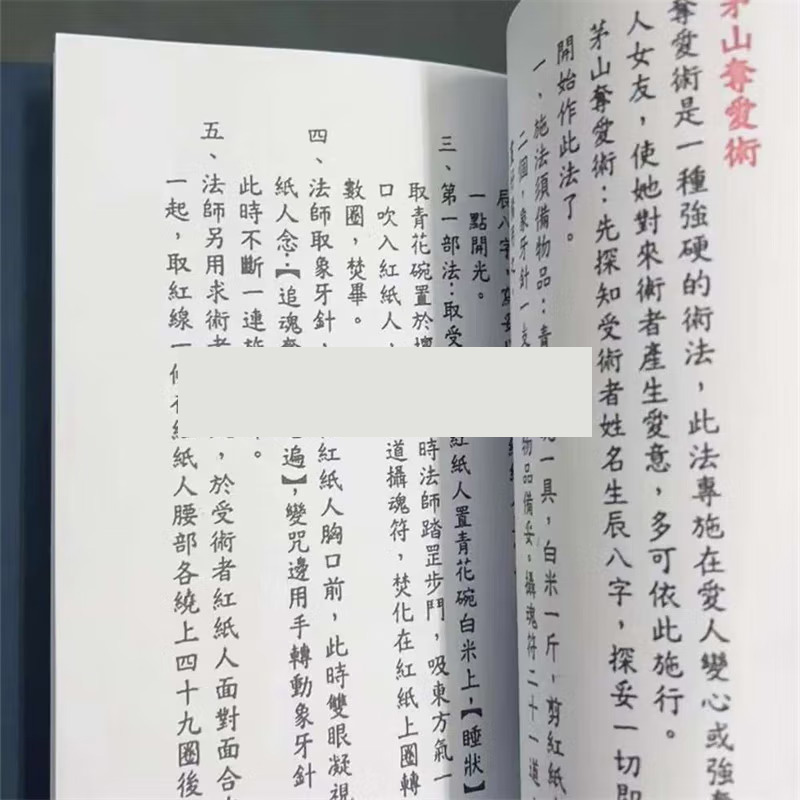 茅山奪愛術
奪愛術是一種強硬的術法，此法專施在愛人變心或強奪
人女友，使她對來術者產生愛意，多可依此施行。
茅山奪愛術：先探知受術者姓名生辰八字，探妥一切即
開始作此法了。
一、施法須備物品：青 一具，白米一斤，剪紅紙
二個，象牙針一支 物品備妥。攝魂符二十一道
辰八字，
一點開光。
三、第一部法：取受 紅紙人置青花碗白米上，【睡狀】
取青花碗置於壇 時法師踏罡步鬥，吸東方氣一
口吹入紅紙人， 道攝魂符，焚化在紅紙上圈轉
數圈，焚畢。
四、法師取象牙針， 紅紙人胸口前，此時雙眼凝視
紙人念：【追魂奪 遍】，變咒邊用手轉動象牙針
此時不斷一連 。
五、法師另用求術者 ，於受術者紅紙人面對面合
一起，取紅線一條 紅紙人腰部各繞上四十九圈後